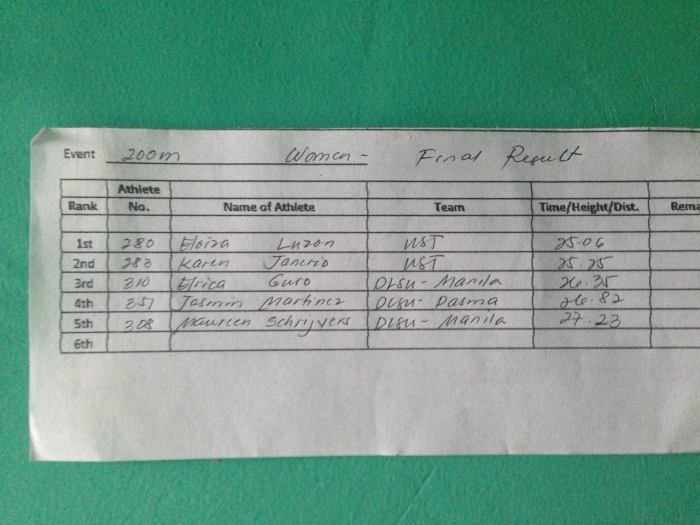 Event 200m Women - Final Result
Athlete
Rank No. Name of Athlete Team Time/Height/Dist. Rema
1st 280 Eloiza Luzon UST 25.06
2nd 283 Karen Janario UST 25.25
3rd 310 Erica Guro DLSU - Manila 26.35
4th 351 Jasmin Martinez DLSU - Dasma 26.82
5th 308 Maureen Schrijvers DLSU - Manila 27.23
6th